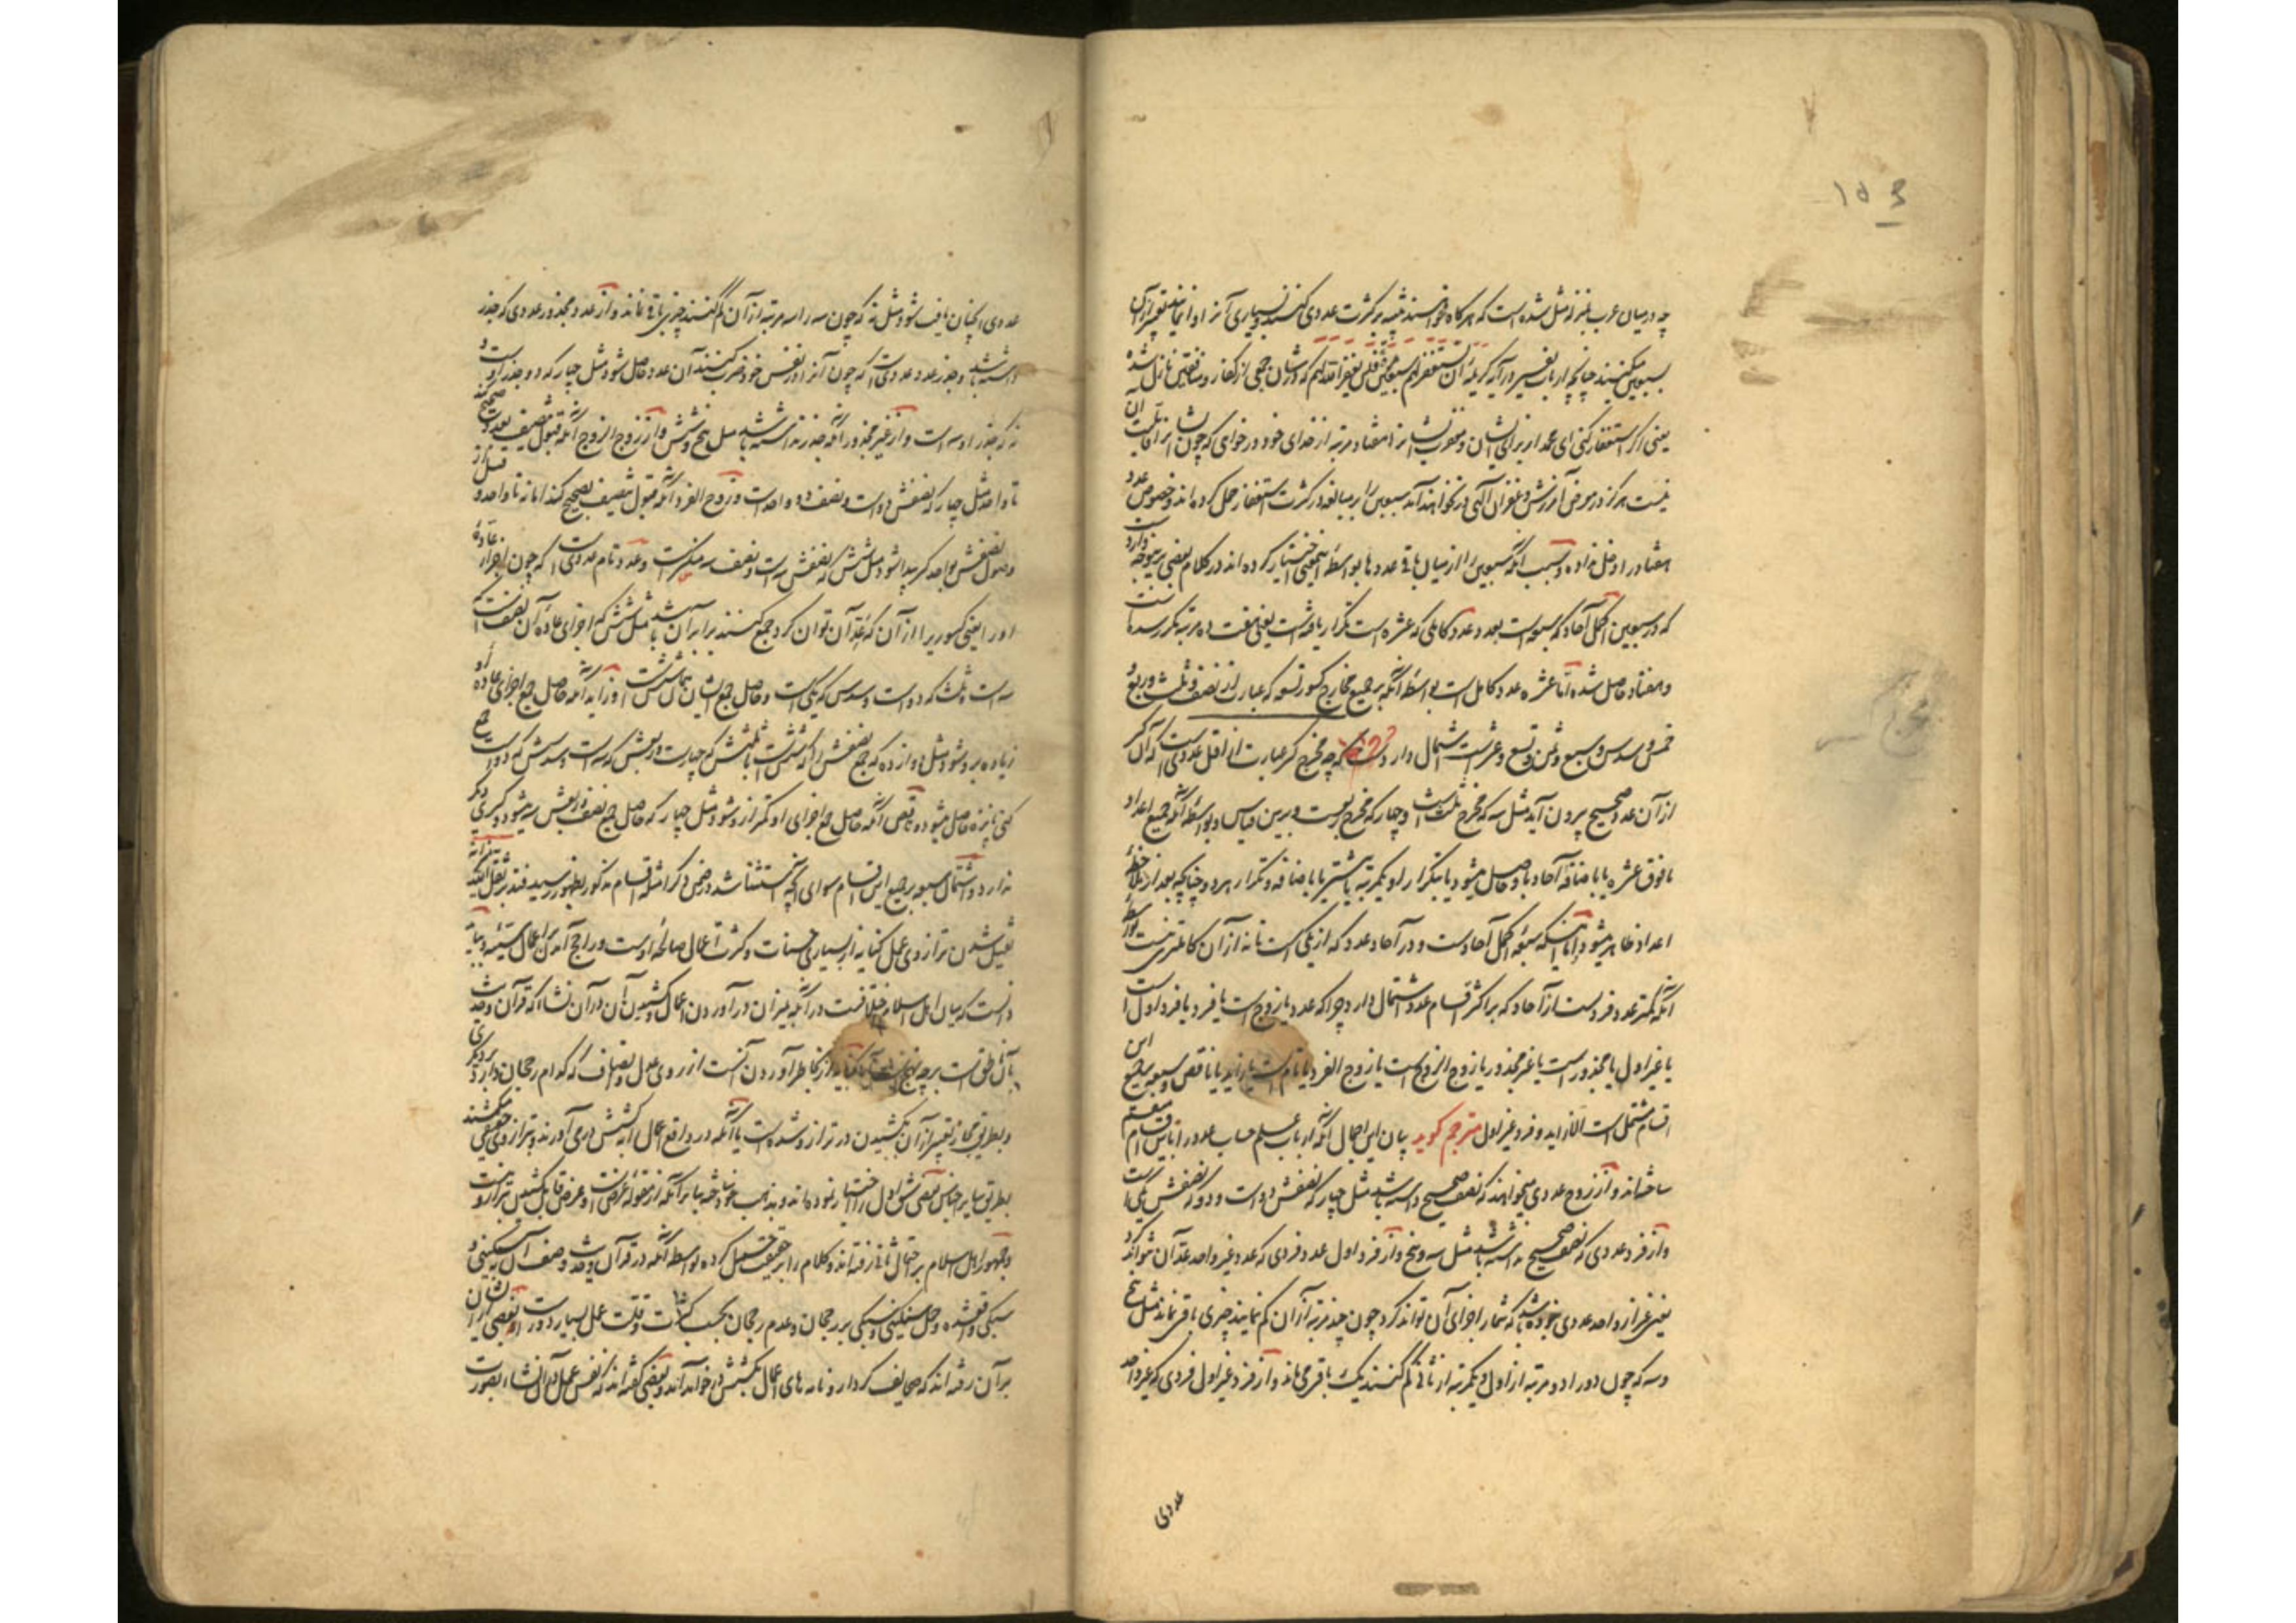 ۱۵۳
چه در میان عرب بمنزله مثل شده است که هرگاه خواسند تنبیه بر کثرت عددی کنند و بسیاری آنرا وا نمایند تعبیر از آن
بسبعین میکنند چنانچه ارباب تفسیر در آیه کریمه ان تستغفر لهم سبعین مرة فلن یغفر الله لهم که در شان جمعی از کفار و منافقین نازل شده
یعنی اگر استغفار کنی ای محمد از برای ایشان و مغفرت ایشان را هفتاد مرتبه از خدای خود در خواهی که چون ایشان را قابلیت آن
نیست هرگز در معرض آمرزش و غفران الهی در نخواهند آمد سبعین را بر مبالغه در کثرت استغفار حمل کرده اند و خصوص عدد
هفتاد را دخل نداده و سبب آنکه سبعین را از میان باقی عددها بواسطه این معنی اختیار کرده اند در کلام بعضی برینوجه وارد است
که در سبعین اکمل آحاد که سبعه است بعدد عدد کاملی که عشره است تکرار یافته است یعنی هفت ده مرتبه مکرر شده است
و هفتاد حاصل شده اما عشره عدد کامل است بواسطه آنکه بر جمیع مخارج کسور تسعه که عبارت از نصف و ثلث و ربع و
خمس و سدس و سبع و ثمن و تسع و عشر است اشتمال دارد چه مخرج کسر عبارت از اقل عددی است که آن کسر
از آن عدد صحیح بیرون آید مثل سه که مخرج ثلث است و چهار که مخرج ربع است و برین قیاس و بواسطه آنکه جمیع اعداد
ما فوق عشره یا باضافه آحاد با او حاصل میشود یا بتکرار او یکمرتبه یا بیشتر یا باضافه و تکرار هر دو چنانچه بعد از ملاحظه
اعداد ظاهر میشود و اما اینکه سبعه اکمل آحاد است و در آحاد عدد که از یکی است تا نه از آن کاملتری نیست بواسطه
آنکه کمتر عدد فرد است از آحاد که بر اکثر اقسام عدد اشتمال دارد چرا که عدد یا زوج است یا فرد یا فرد اول است
یا غیر اول یا مجذور است یا غیر مجذور یا زوج الزوج است یا زوج الفرد یا تام است یا زاید یا ناقص و سبعه بر جمیع این
اقسام مشتمل است الا زاید و فرد غیر اول مترجم گوید بیان این اجمال آنکه ارباب علم حساب عدد را باین اقسام منقسم
ساخته اند و از زوج عددی میخواهند که نصف صحیح داشته باشد مثل چهار که نصفش دو است و دو که نصفش یکی است
و از فرد عددی که نصف صحیح نداشته باشد مثل سه و پنج و از فرد اول عدد فردی که عدد غیر واحد عد آن نتواند کرد
یعنی غیر از واحد عددی نبوده باشد که شمار اجزای آن تواند کرد چون چند مرتبه از آن کم نمایند چیزی باقی نماند مثل پنج
و سه که چون دو را دو مرتبه از اول و یکمرتبه از ثانی کم کنند یک باقی می ماند و از فرد غیر اول فردی که غیر واحد
عددی
عددی آنچنان یافت شود مثل نه که چون سه را سه مرتبه از آن کم کنند چیزی باقی نماند و از عدد مجذور عددی که جذر
داشته باشد و جذر عدد عددی است که چون آنرا در نفس خود ضرب کنند آن عدد حاصل شود مثل چهار که دو جذر اوست و
نه که جذر او سه است و از غیر مجذور آنکه جذر نداشته باشد مثل پنج و شش و از زوج الزوج آنکه قبول تنصیف بعدد صحیح کند
تا واحد مثل چهار که نصفش دو است و نصف دو واحد است و زوج الفرد آنکه قبول تنصیف صحیح کند اما نه تا واحد و قبل از
وصول نصفش بواحد کسر پیدا شود مثل شش که نصفش سه است و نصف سه منکسر است و عدد تام عددی است که چون اجزاء عاده
او را یعنی کسور یرا از آن که عد آن توان کرد جمع کنند برابر آن باشد مثل شش که اجزای عاده آن نصف است که
سه است و ثلث که دو است و سدس که یکی است و حاصل جمع ایشان همان شش است و زاید آنکه حاصل جمع اجزای عاده او
زیاده بر او شود مثل دوازده که جمع نصفش را که شش است با ثلثش که چهار است و ربعش که سه است و سدسش که دو است جمع
کنی پانزده حاصل میشود و ناقص آنکه حاصل جمع اجزای او کمتر از او شود مثل چهار که حاصل جمع نصف و ربعش سه میشود و کسری دیگر
ندارد و اشتمال سبعه بر جمیع این اقسام سوای آنچه استثنا شد در ضمن ذکر امثله اقسام مذکور بظهور رسید فتدبر ثقل میزانه
ثقیل شدن ترازوی عمل کنایه از بسیاری حسنات و کثرت اعمال صالحه اوست و راجح آمدن بر اعمال سیئه و بباید
دانست که میان اهل اسلام اختلافست در آنکه میزان در آوردن اعمال و کشیدن آن در آن نشاء که قرآن و حدیث
بآن ناطق است بر چه نهج است آیا کنایه از بخاطر آوردن آنست از روی عدل و انصاف که کدام رجحان دارد بر دیگری
و بطریق مجاز تعبیر از آن بکشیدن در ترازو شده است یا آنکه در واقع اعمال را بکشش در می آورند و بترازوی حقیقی میکشند
بطریق سایر اجناس بعضی شق اول را اختیار نموده اند و بدین مذهب خود ساخته بنا بر آنکه از مقوله عرض است و عرض قابل کشیدن بترازو نیست
و جمهور اهل اسلام بر احتمال ثانی رفته اند و کلام را بر حقیقت حمل کرده بواسطه آنکه در قرآن و حدیث وصف آن بسنگینی و
سبکی واقع شده و حمل سنگینی و سبکی بر رجحان و عدم رجحان بحسب کثرت و قلت عمل بسیار دور است و بعضی از ایشان
بر آن رفته اند که صحایف کردار و نامه های اعمال بکشش در خواهد آمد و بعضی گفته اند که نفس عمل در آن نشاء بصورت